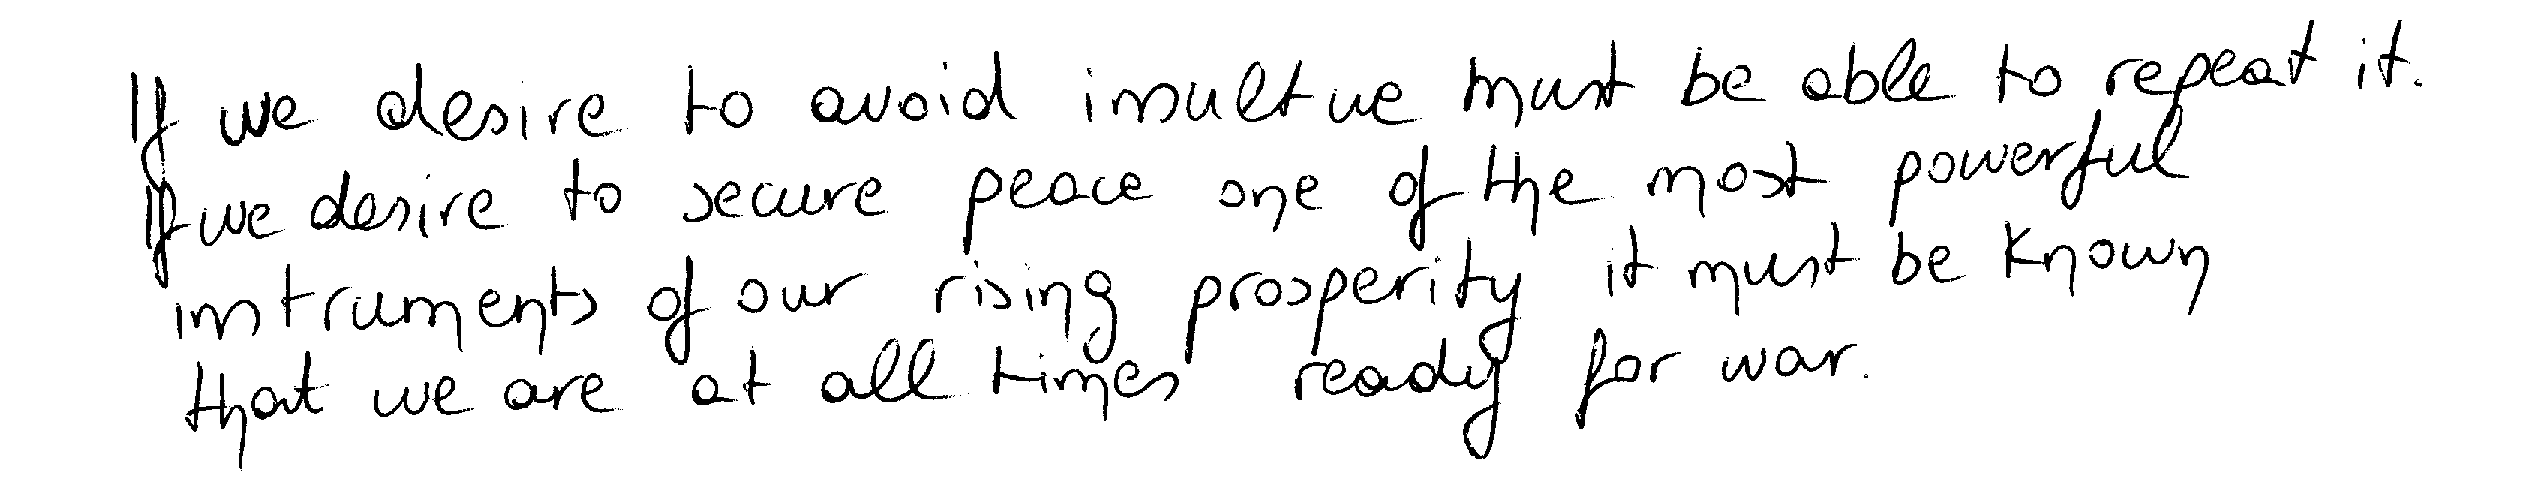 If we desire to avoid insult we must be able to repeat it.
If we desire to secure peace one of the most powerful
instruments of our rising prosperity it must be known
that we are at all times ready for war.